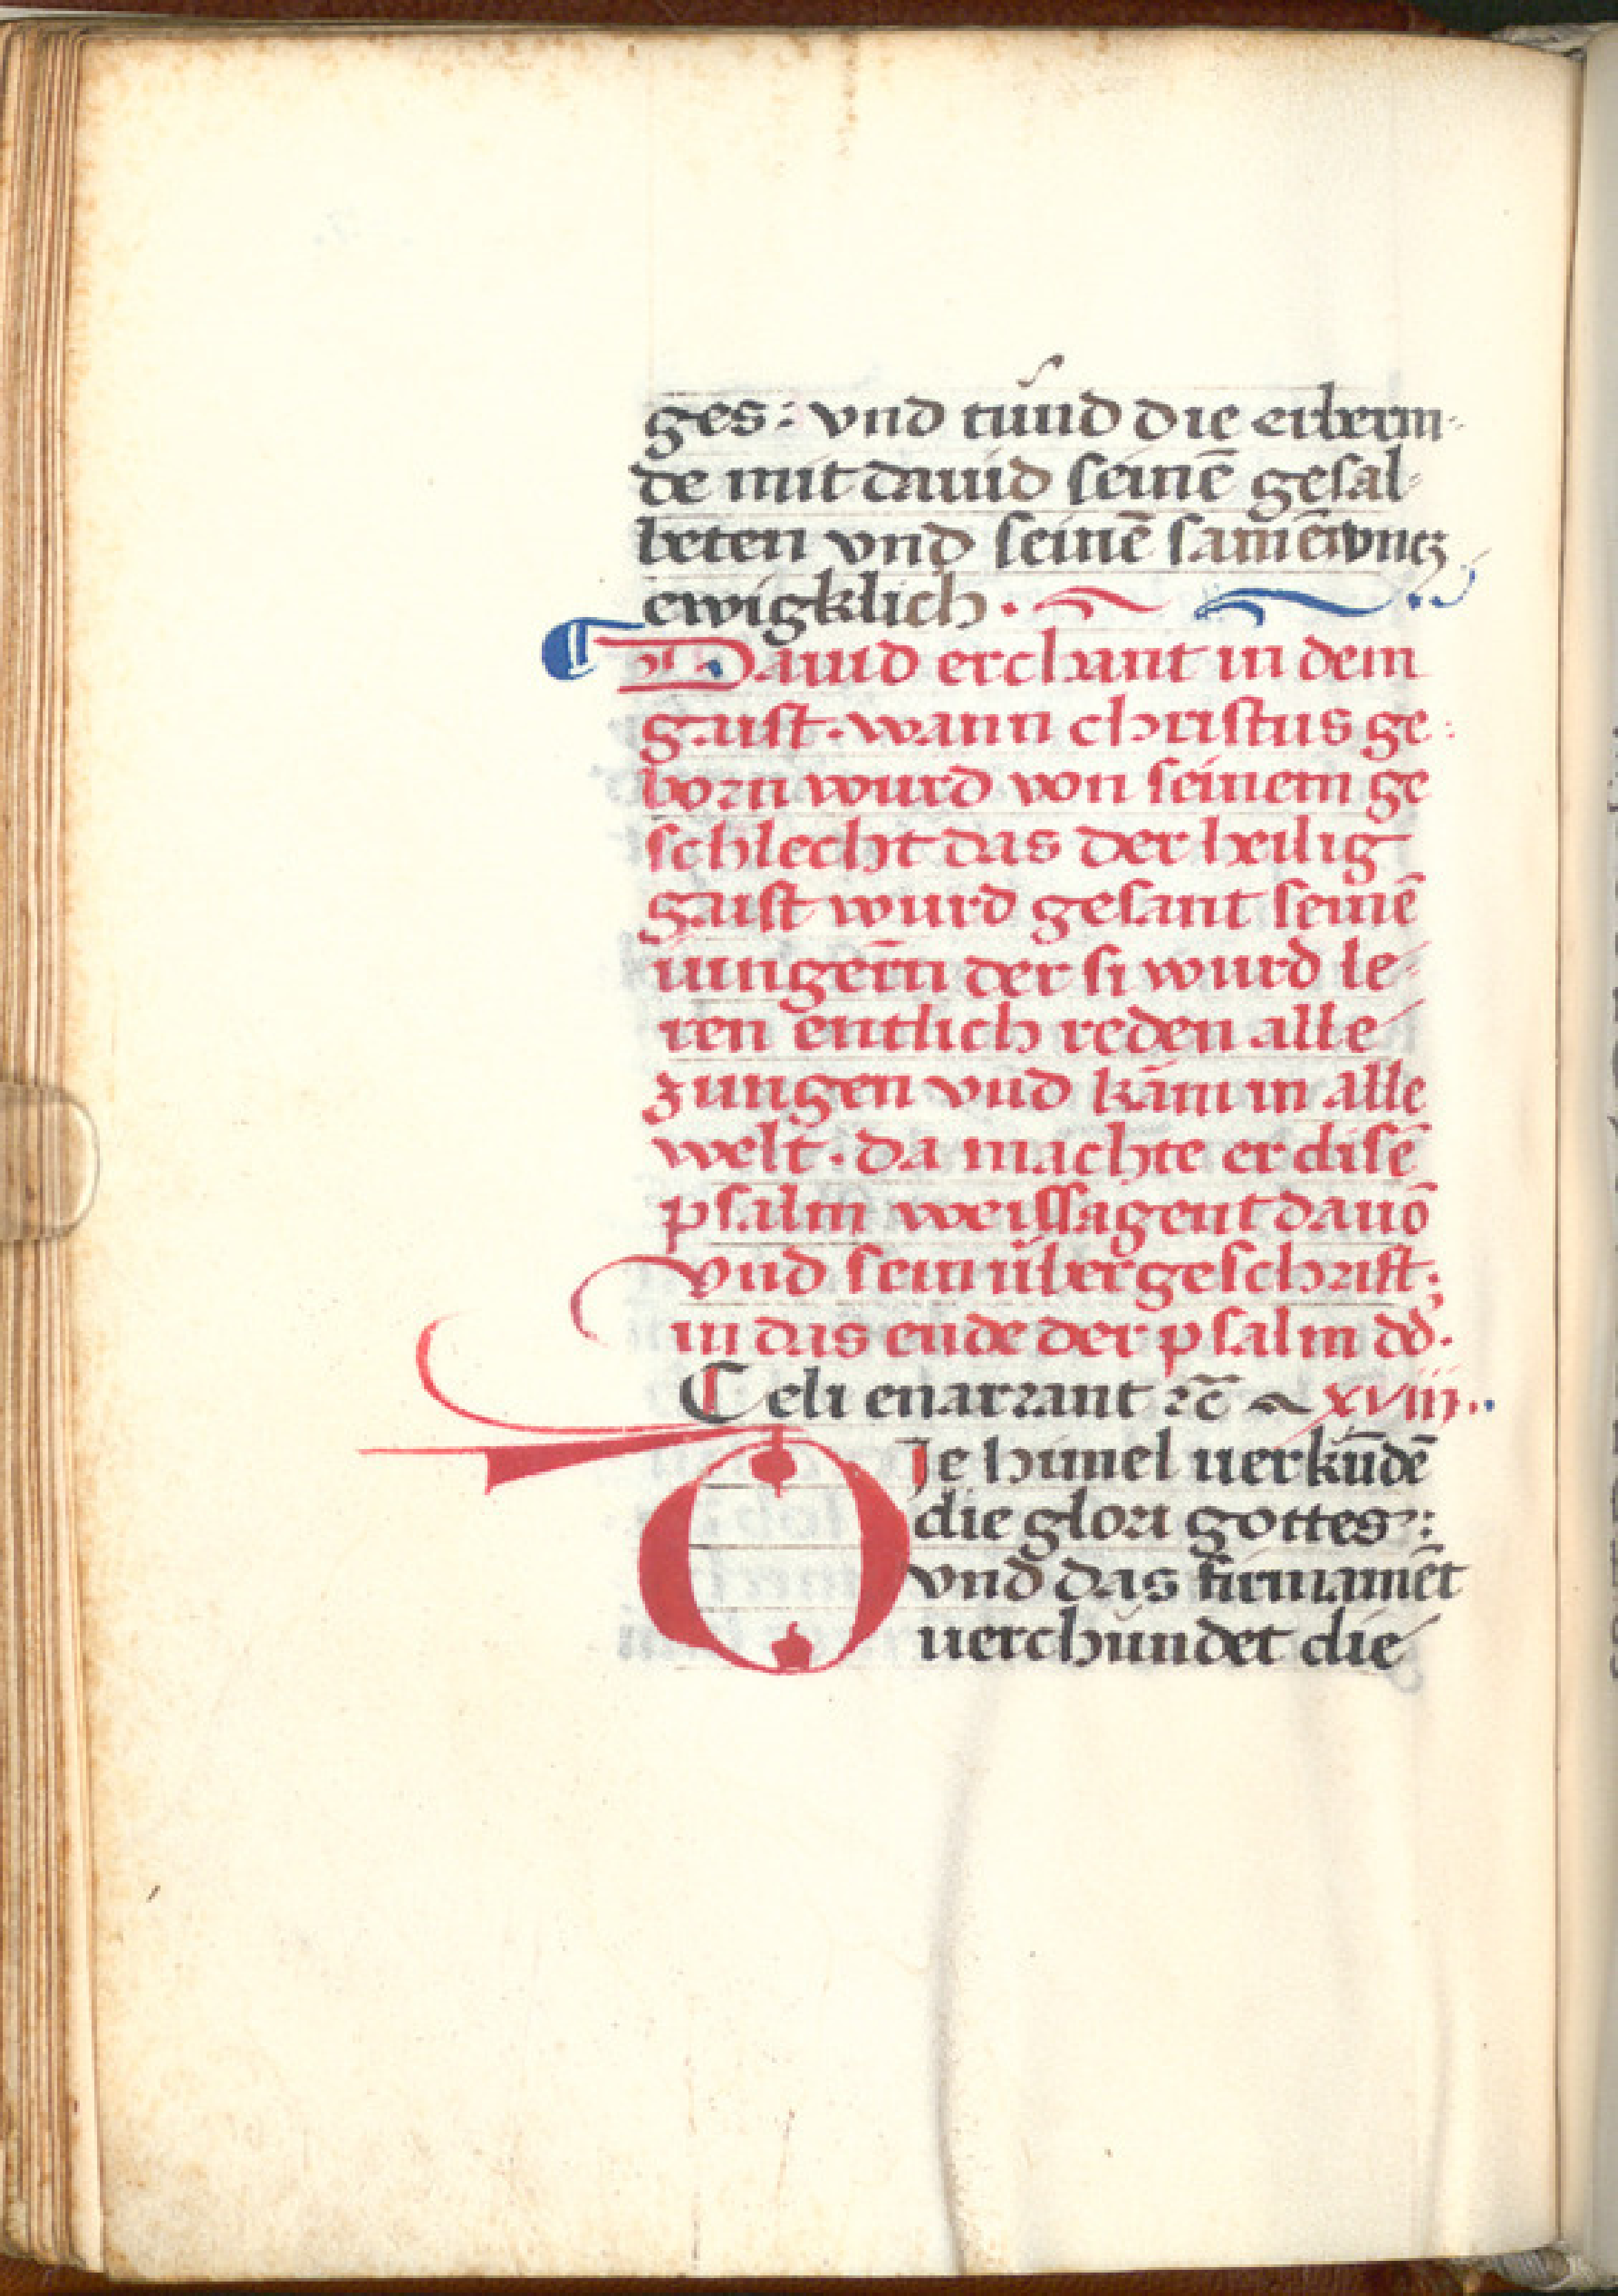 ges: vnd tuͦnd die erberm-
de mit dauid seinē gesal-
beten vnd seinē samē vncz
ewigklich.
Dauid erchant in dem
gaist. wann christus ge-
born wurd von seinem ge
schlecht das der heilig
gaist wurd gesant seinē
iungern̄ der si wurd le-
ren entlich reden alle
zungen vnd kām in alle
welt. da machte er disē
psalm weissagent dauō
vnd sein übergeschrift:
in das ende der psalm dd.
Celi enarrant ⁊c̄ xviii..
DJe himel uerkūdē
die glori gottes:
vnd das firmamēt
uerchündet die